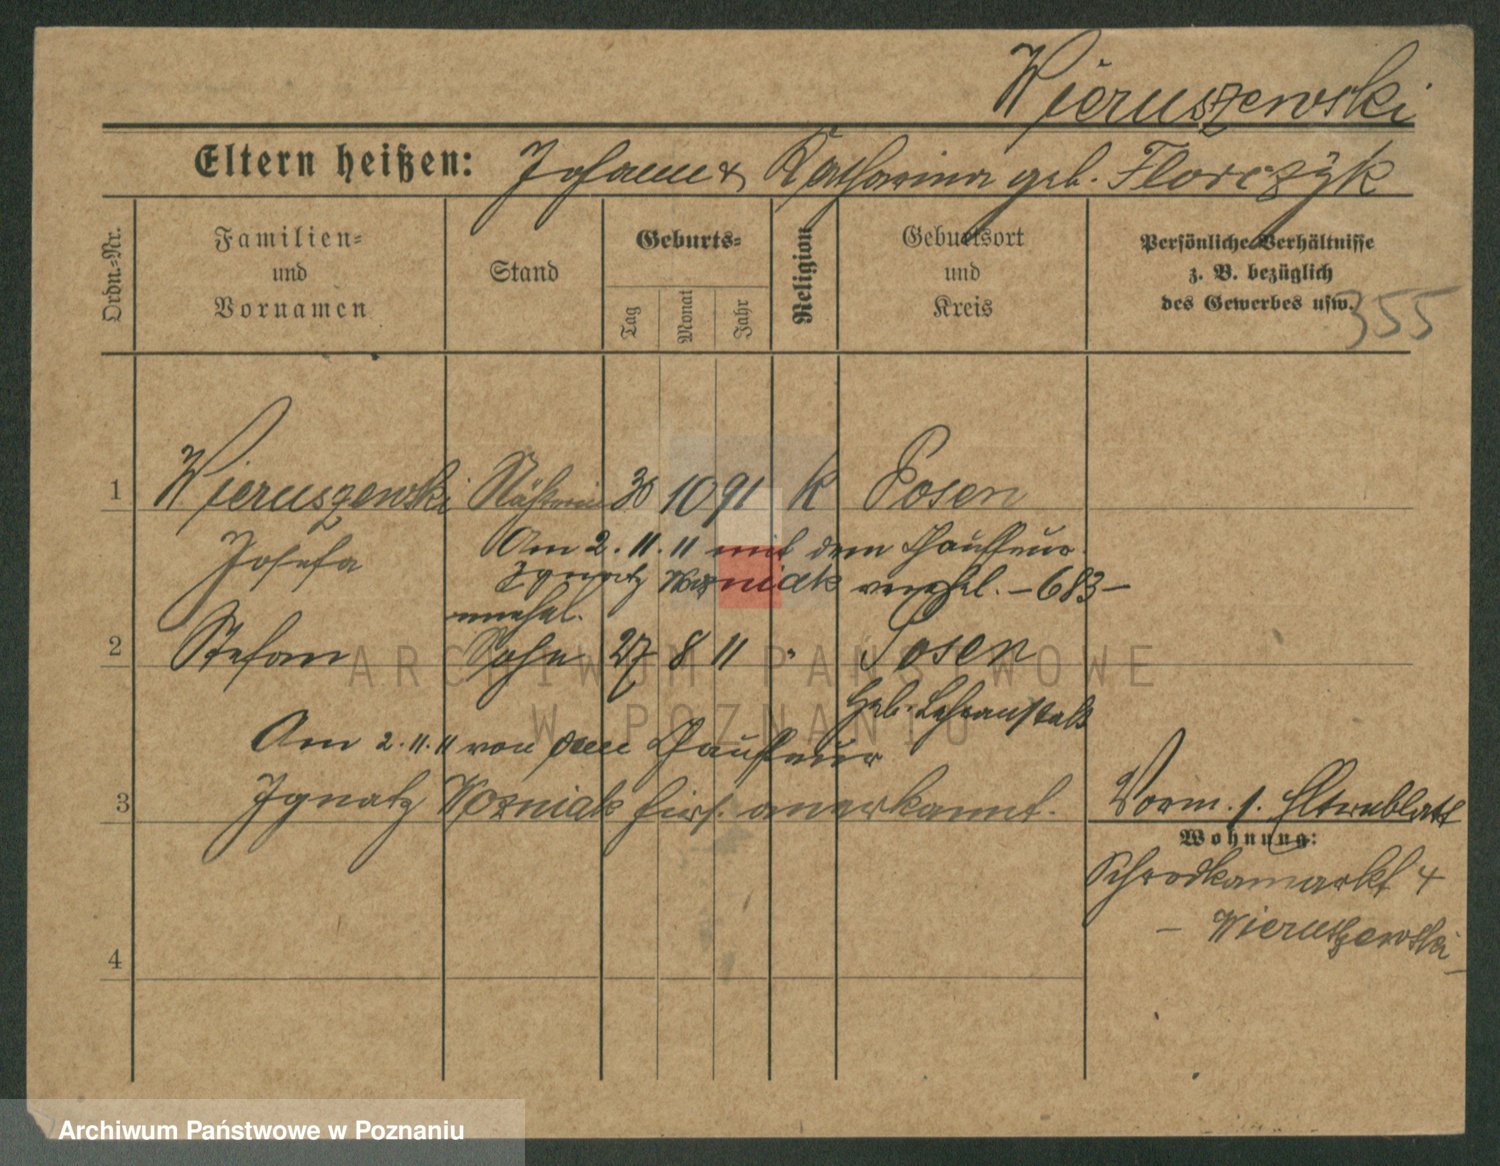 Wieruszewski
Eltern heißen: Johann & Katharina geb. Florczyk
Ordn.-Nr.
Familien-
und
Vornamen
Stand
Geburts-
Tag
Monat
Jahr
Religion
Geburtsort
und
Kreis
Persönliche Verhältnisse
z. B. bezüglich
des Gewerbes usw.
355
1 Wieruszewski Näherin 30 10 91 K Posen
Josefa
Am 2.11.11 mit dem Chauffeur
Ignatz Wozniak verehel. – 683 –
unehel.
2 Stefan Sohn 27 8 11 " Posen
Heb. Lehranstalt
Am 2.11.11 von dem Chauffeur
3 Ignatz Wozniak hiers. anerkannt.
Vorm. s. Elternblatt
Wohnung:
Schrodkamarkt 4
– Wieruszewski –
4
ARCHIWUM PAŃSTWOWE
W POZNANIU
Archiwum Państwowe w Poznaniu